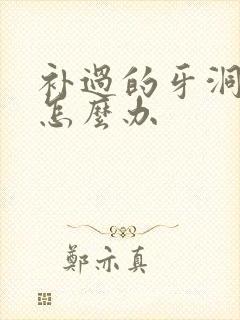 补过的牙洞
怎麼办
鄭亦真